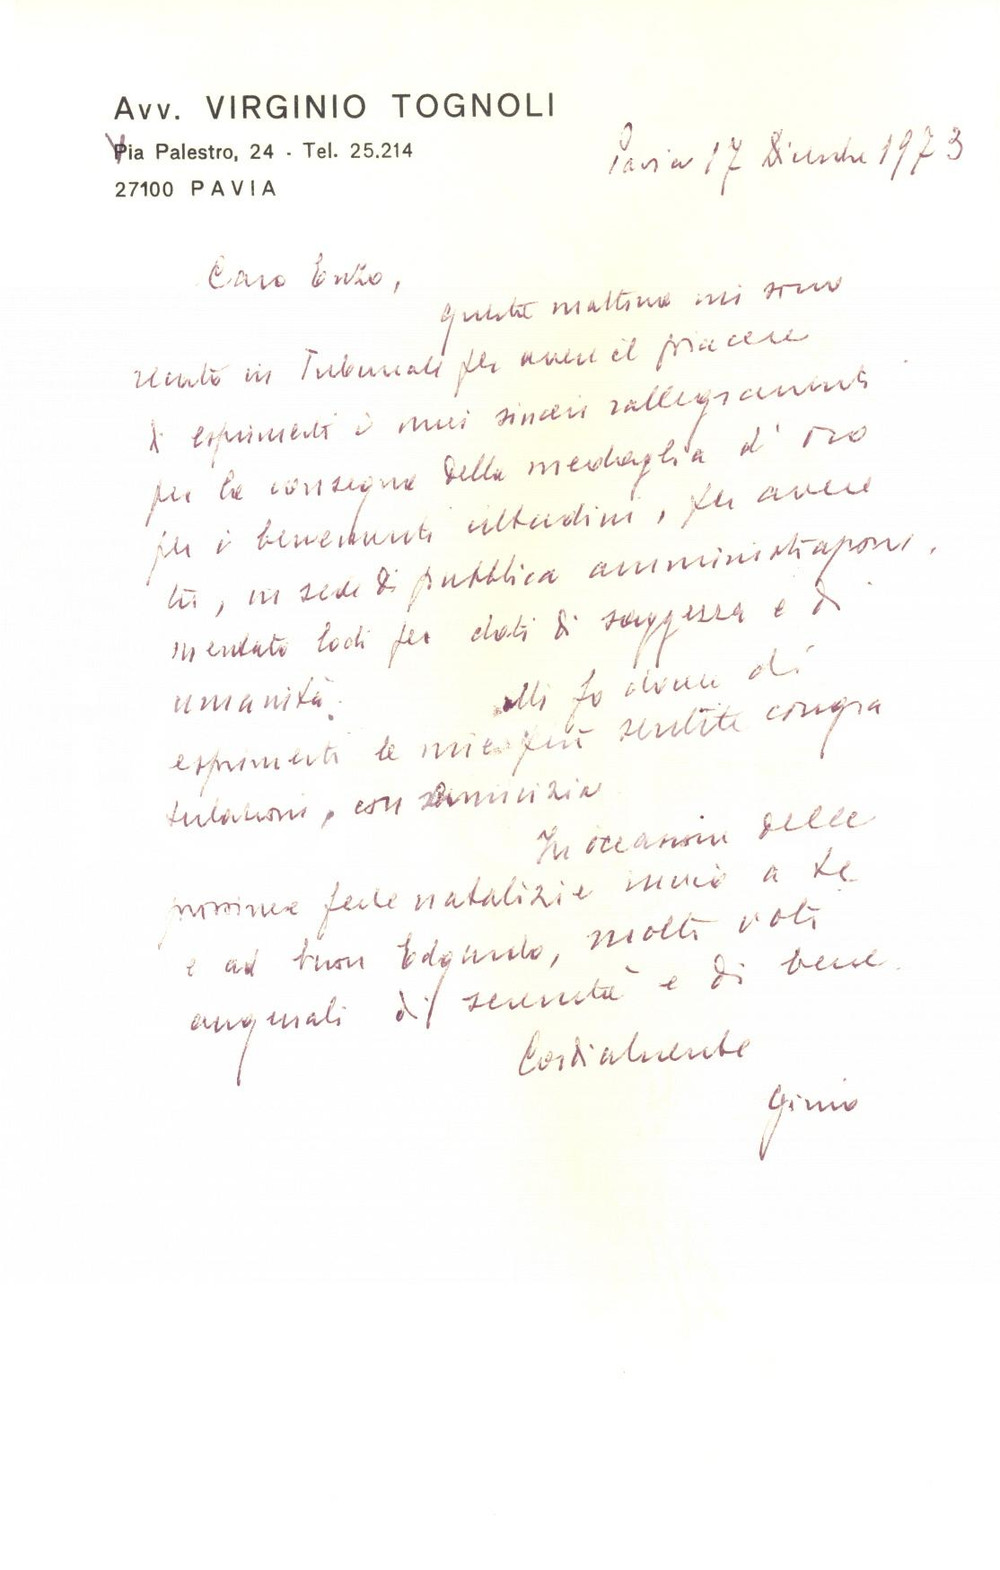 Avv. VIRGINIO TOGNOLI
Via Palestro, 24 - Tel. 25.214
27100 PAVIA
Pavia 17 Dicembre 1973
Caro Enzo,
questa mattina mi sono
recato in Tribunale per avere il piacere
di esprimerti i miei sinceri rallegramenti
per la consegna della medaglia d'oro
per i benemeriti cittadini, per avere
tu, in sede di pubblica amministrazione,
meritato lodi per doti di saggezza e di
umanità.
Mi fo dovere di
esprimerti le mie più sentite congra
tulazioni, con amicizia
In occasione delle
prossime feste natalizie invio a te
e ad buon Edgardo, molti voti
augurali di serenità e di bene.
Cordialmente
Ginio